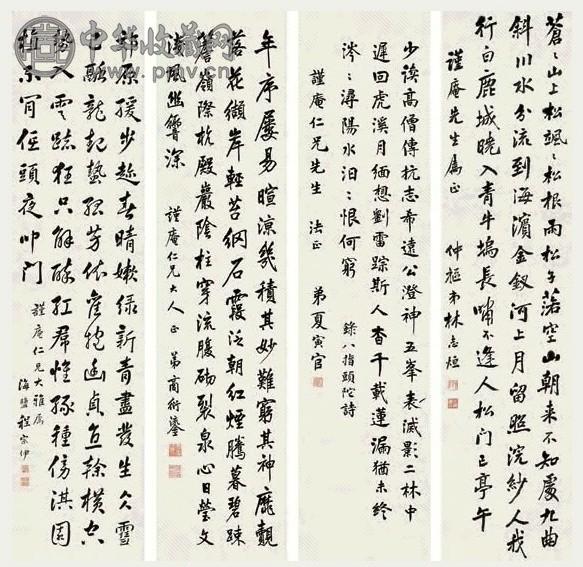 中华收藏网
蒼々山上松颯々松根雨松子落空山朝来不知處九曲
斜川水分流到海濱金釵河上月留照浣紗人我
行白鹿城曉入青牛塢長嘯不逢人松门已亭午
謹庵先生属正 仲樞弟林志烜
少讀高僧傳抗志希遠公澄神五峯表滅影二林中
遲回虎溪月緬想劉雷踪斯人杳千載蓮漏猶未終
涔々潯陽水汩々恨何窮 錄八指頭陀詩
謹庵仁兄先生 法正 弟夏寅官
年序屢易暄涼幾積其妙難窮其神靡覿
落花纈岸輕苔網石霞泛朝紅煙騰暮碧疎
簷嶺際杭殿巖陰柱穿流腹砌裂泉心日瑩文
淺風幽響深 謹庵仁兄大人正 弟商衍鎏
郊原緩步趁春晴嫩綠新青盡發生久雪
中龍起蟄孤芳依舊抱幽貞直幹橫空
終入雲狂只解酔紅裙性種傍淇園
頭夜叩门
謹庵仁兄大雅属
海鹽程宗伊